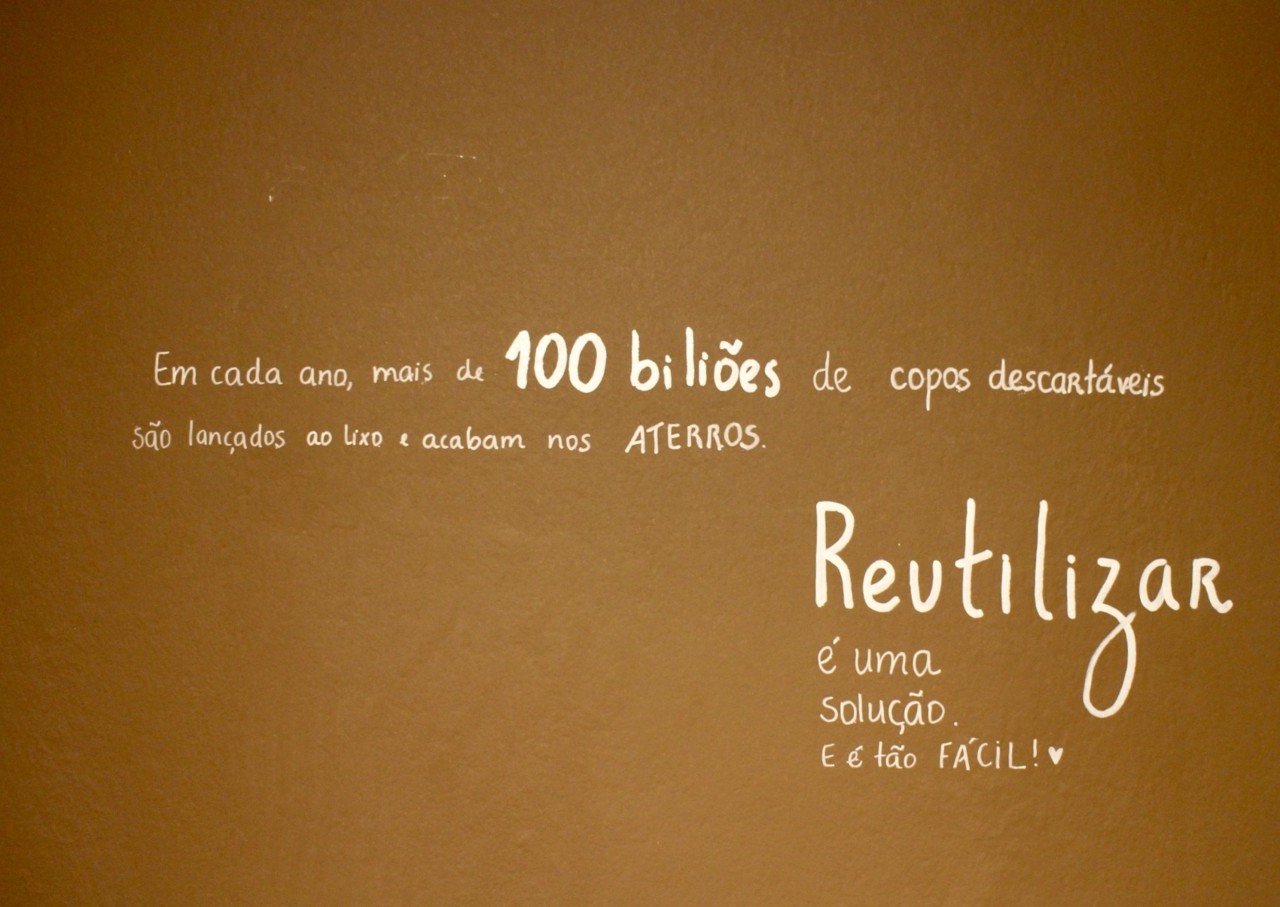 Em cada ano, mais de 100 biliões de copos descartáveis
são lançados ao lixo e acabam nos ATERROS.
Reutilizar
é uma
solução.
E é tão FÁCIL! ♥